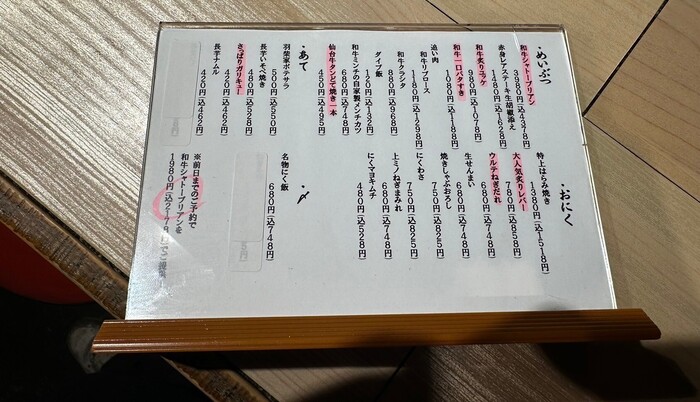 ・めいぶつ
和牛シャトーブリアン
3980円(込4378円)
赤身レアステーキ生胡椒添え
1480円(込1628円)
和牛炙りユッケ
980円(込1078円)
和牛一口バタすき
1080円(込1188円)
追い肉
和牛リブロース
1180円(込1298円)
和牛クラシタ
880円(込968円)
ダイブ飯
120円(込132円)
和牛ミンチの自家製メンチカツ
680円(込748円)
仙台牛タンとて焼き一本
450円(込495円)
・あて
羽柴家ポテサラ
500円(込550円)
長芋いそべ焼き
480円(込528円)
さっぱりガリキュー
420円(込462円)
長芋ナムル
420円(込462円)
・おにく
特上はらみ焼き
1380円(込1518円)
大人気炙りレバー
780円(込858円)
ウルテねぎだれ
680円(込748円)
生せんまい
680円(込748円)
焼きしゃぶおろし
750円(込825円)
にくわさ
750円(込825円)
上ミノねぎまみれ
680円(込748円)
にくマヨキムチ
480円(込528円)
・〆
名物にく飯
680円(込748円)
※前日までのご予約で
和牛シャトーブリアンを
1980円(込2178円)でご提供